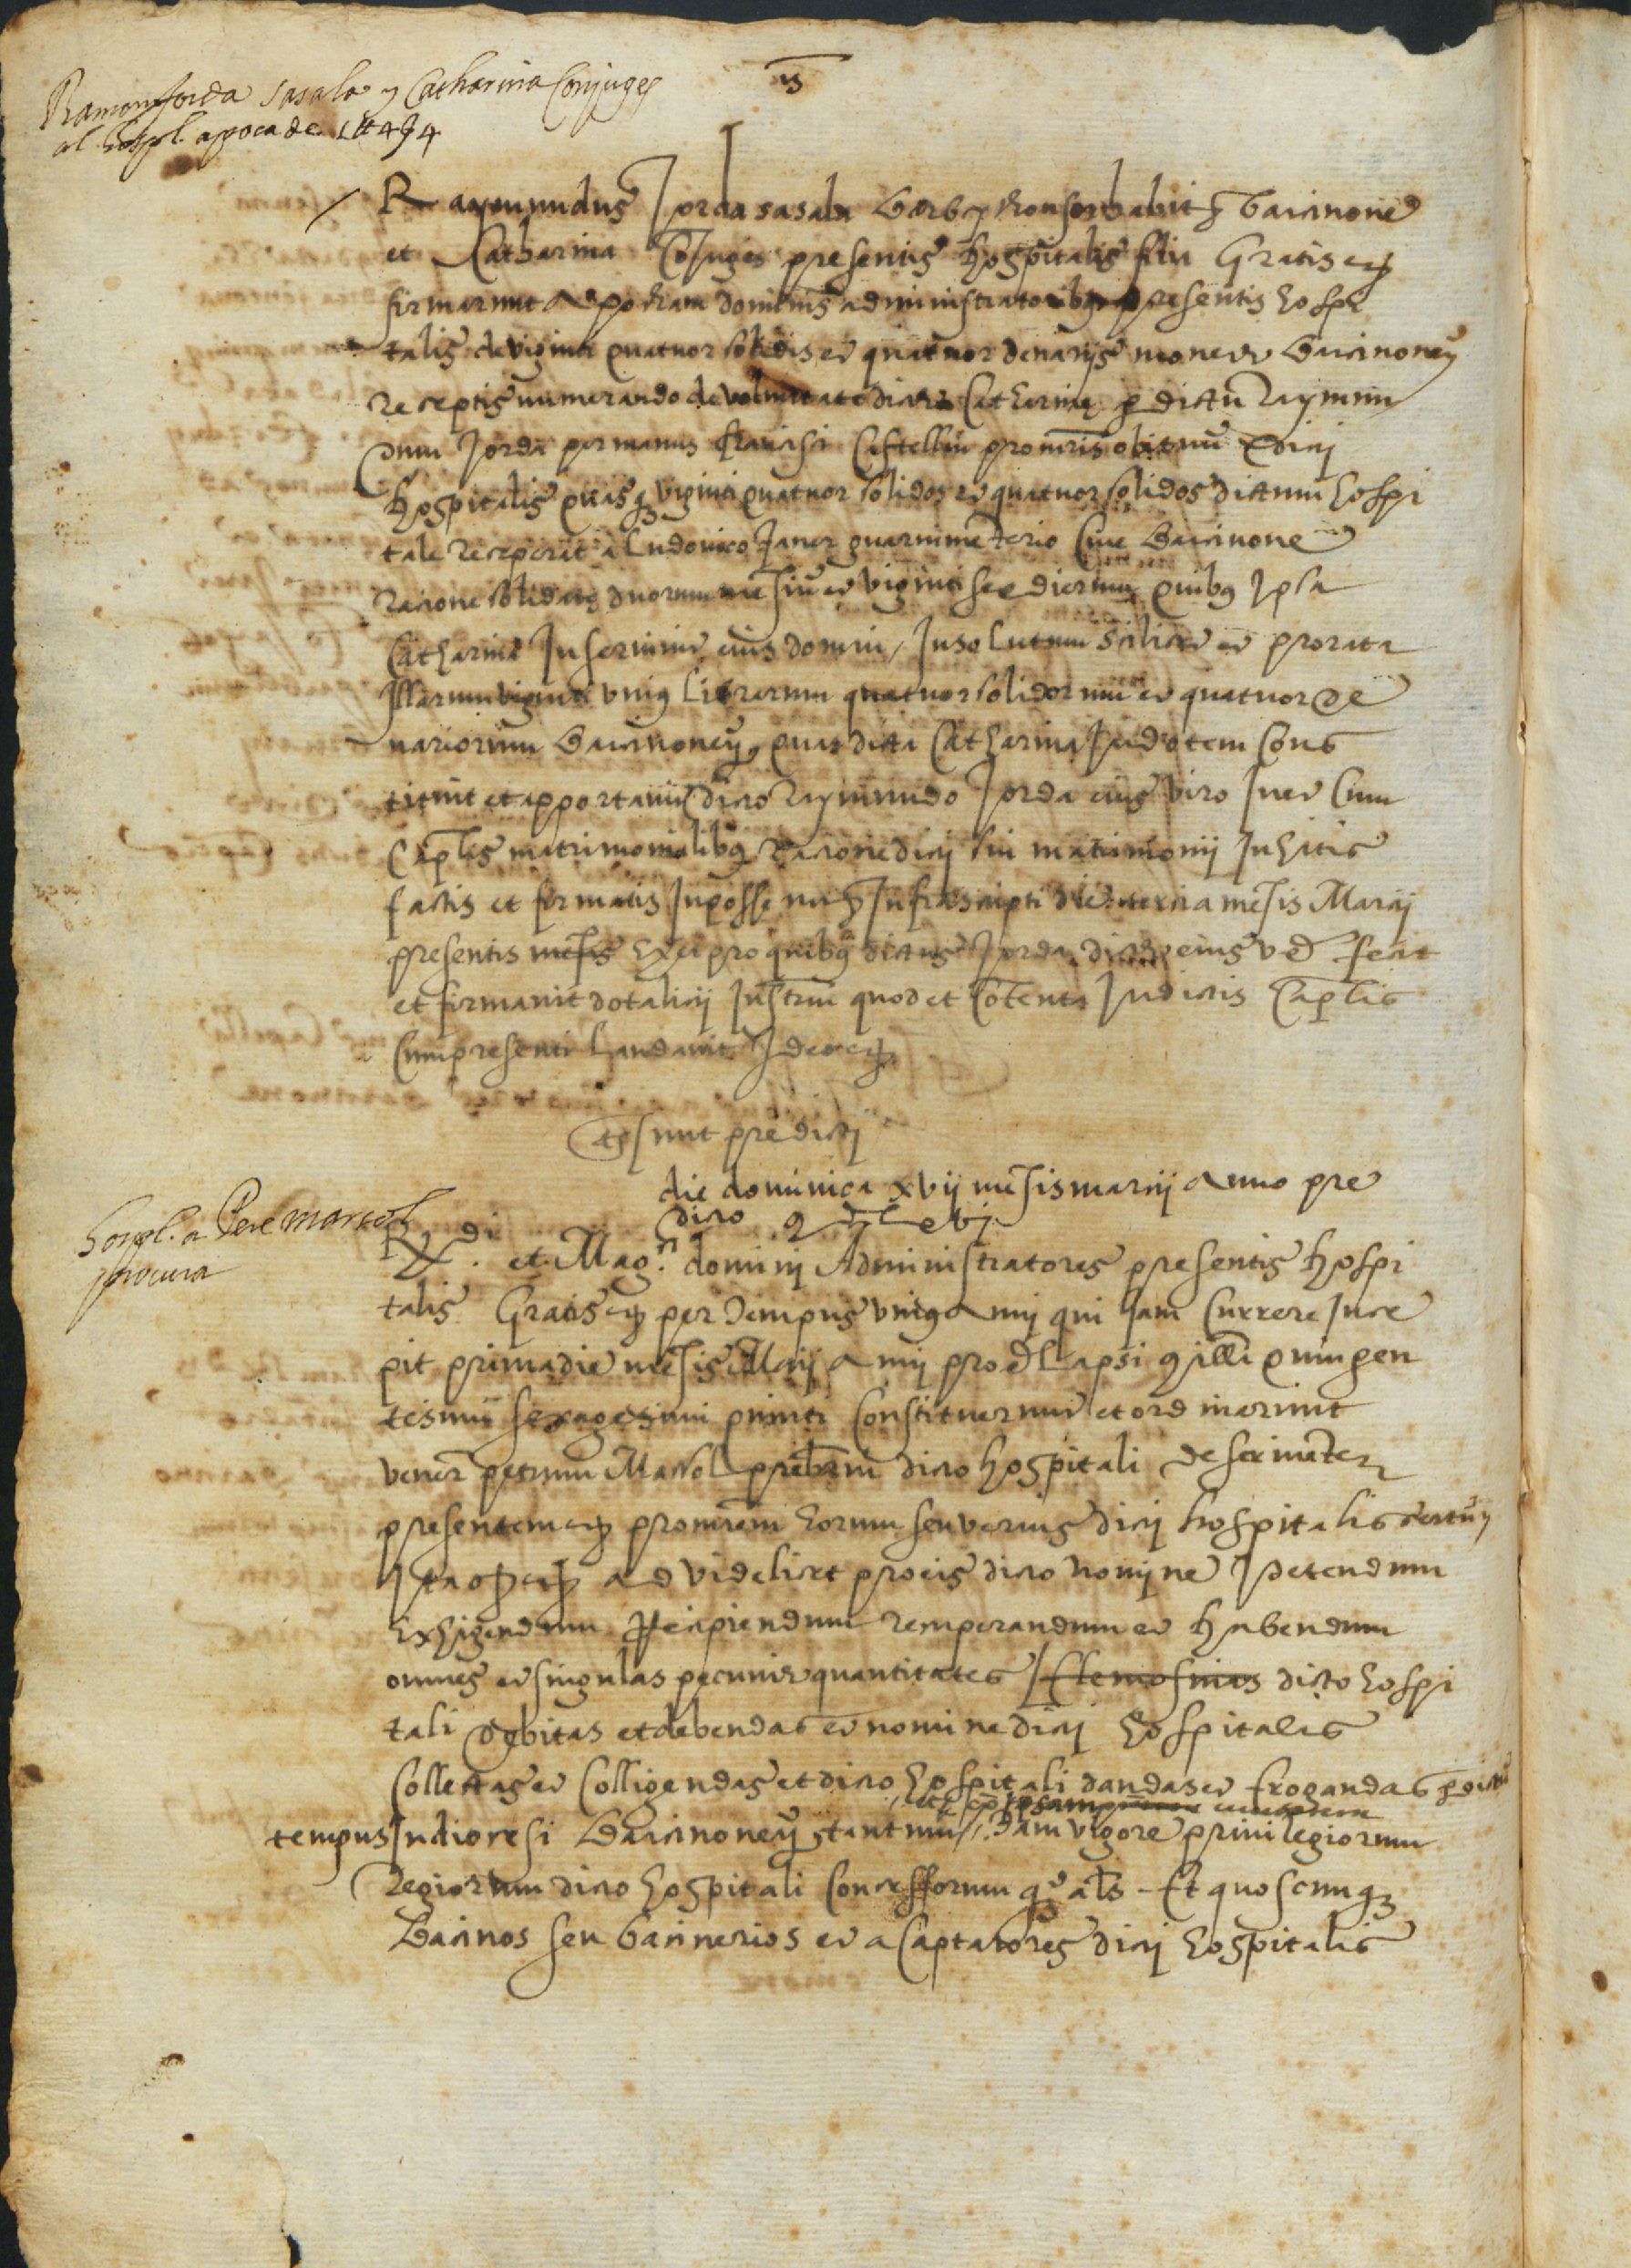 Ramon Jorda sasala y Catharina Conjuges
al hospl. apoca de 1 ll 4 s 4
Raymundus Jorda sasala habit. Barcinone
et Catharina Cojuges presentis hospitalis filia Gratis etc
firmarunt apocham dominis administratoribus presentis hospi
talis de viginti quatuor solidis et quatuor denariis monete Barcinonen
receptis numerando de voluntate dicte Catharine per dictu Raymun
dum Jorda per manus francisci Castello procuris dicti
hospitalis quasq viginti quatuor solidos et quatuor solidos dictum hospi
tale receperat a Ludovico Janer guarnimenterio Cive Barcinone
racione solidate duorum mesiu et viginti sex dierum quibus Ipsa
Catharina Inservivit eius domui / Insolutum scilicet et prorata
Illarum viginti unius Librarum quatuor solidorum et quatuor de
nariorum Barcinonen quas dicta Catharina In dotem Cons
tituit et apportavit dicto Raymundo Jorda eius viro Inet Cum
Caplis matrimonialibus racione dicti sui matrimonii Inhitis
factis et firmatis In posse mei Infrascripti die tercia mesis Marcii
presentis mesis Et pro quibus dictus Jorda dicte eius ux. fecit
et firmavit dotalicii Instrm quod et Cotenta In dictis Caplis
Cum presenti Laudavit Ideo etc
Ts sunt predicti
die dominica xvij mesis marcii Anno pre
dicto
Hospl. a Pere marcol
procura
Rdi. et Magn. dominj Administratores presentis hospi
talis Gratis etc per tempus unius Anni qui Jam Currere Ince
pit prima die mesis Maij Anni prod Lapsi millimi quingen
tesimi sexagesimi quinti Constituerunt et ordinarunt
vener petrum Marcol prebrm dicto hospitali deservinte
presentem etc procurem Eorum seu verius dicti hospitalis certum
Ita q etc ad videlicet pro eis dicto nomine petendum
Exhigendum Recipiendum recuperandum et habendum
omnes et singulas pecunie quantitates / Elemosinas dicto hospi
tali Debitas et debendas et nomine dicti hospitalis
Collectas et Colligendas et dicto hospitali dandas et Erogandas p dictu
tempus In diocesi Barcinonen tantum / tam vigore privilegiorum
Regiorum dicto hospitali Concessorum q als - Et quoscumq
Bacinos seu bacinerios et aCaptatores dicti hospitalis